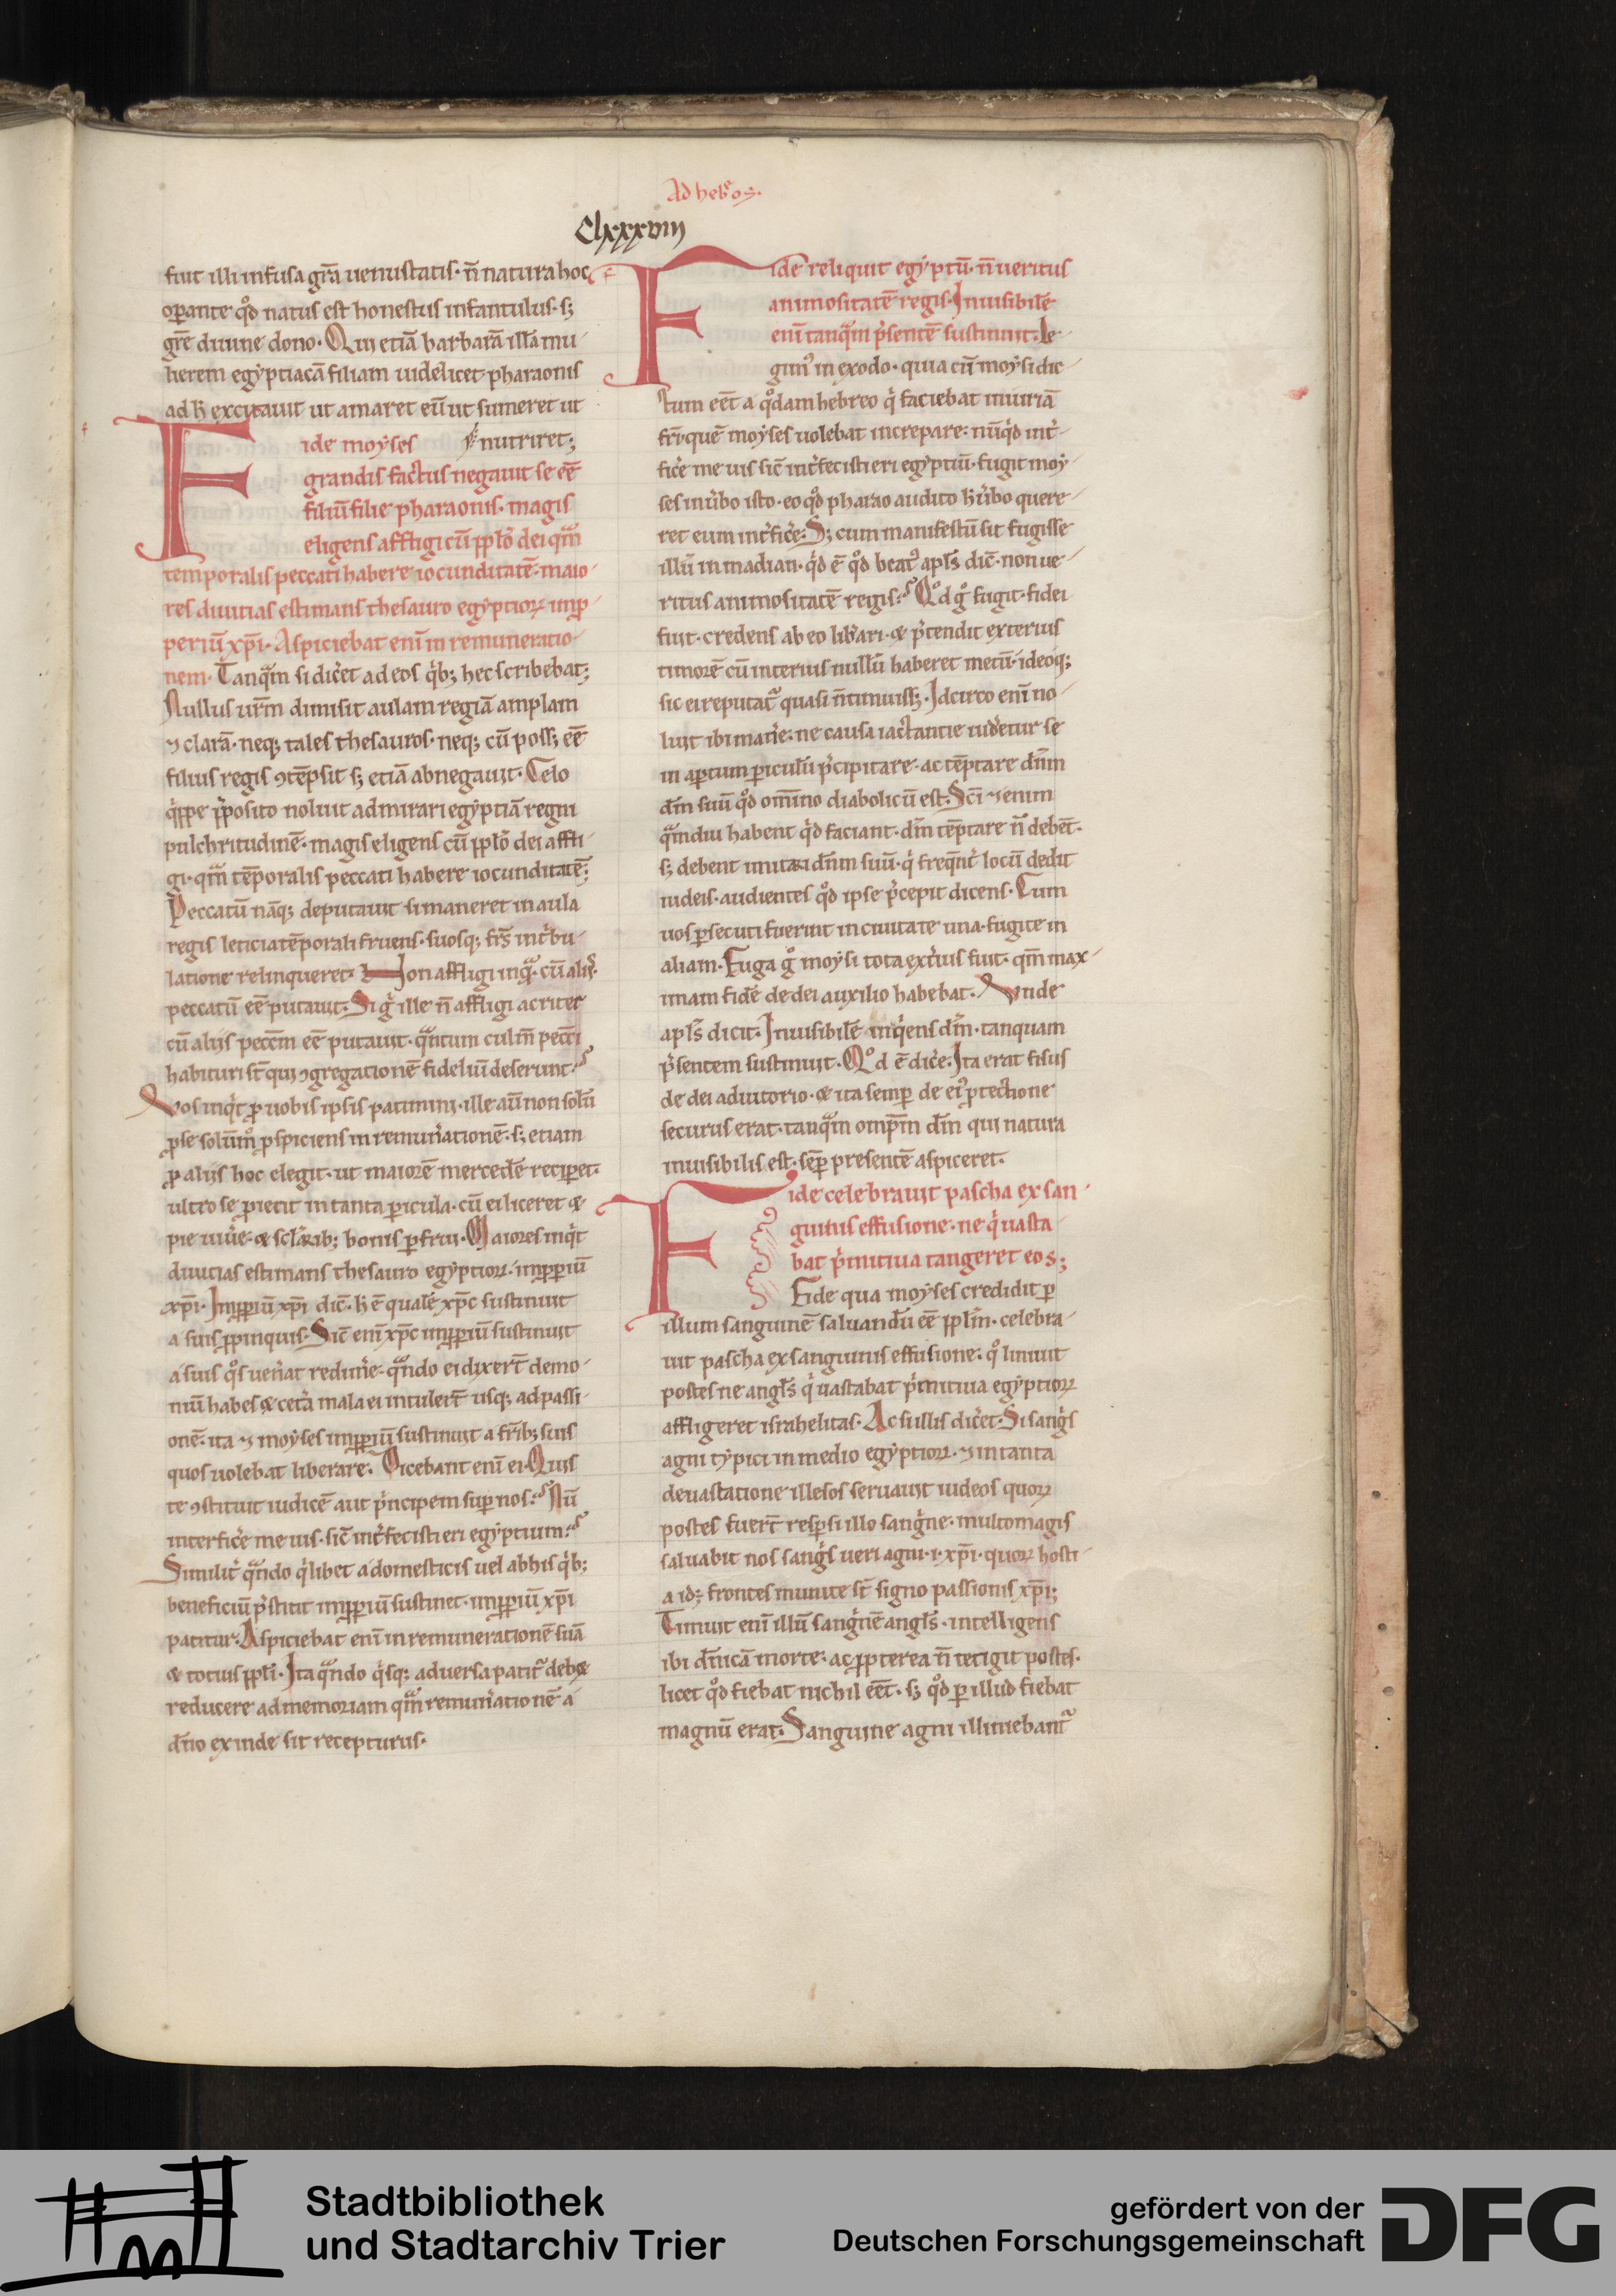 Ad heb͛os.
Clxxxviii
fuit illi infusa gr̄a uenustatis. n̄ natura hoc
oꝑante qd̊ natus est honestus infantulus. sꝫ
gr̄e diuine dono. Qui etiā barbarā illā mu
lierem egyptiacā filiam uidelicet pharaonis
ad h̄ excitauit ut amaret eū ut sumeret ut
nutriret;
Fide moyses
grandis factus negauit se eē
filiū filie pharaonis. magis
eligens affligi cū ppl̄o dei qm̄
temporalis peccati habere iocunditatē. maio
res diuitias estimans thesauro egyptioꝝ inp
periū xp̄i. Aspiciebat enī in remuneratio
nem. Tanqm̄ si dic̄et ad eos qͥbꝫ hec scribebat;
Nullus ur̄m dimisit aulam regiā amplam
⁊ clarā. neqꝫ tales thesauros. neqꝫ cū possꝫ eē
filius regis ꝯtēpsit sꝫ etiā abnegauit. Celo
qͥppe ꝓposito noluit admirari egyptiā regni
pulchritudinē. magis eligens cū ppl̄o dei affli
gi. qm̄ tēporalis peccati habere iocunditatē;
Peccatū nāqꝫ deputauit si maneret in aula
regis leticia tēporali fruens. suosqꝫ frs̄ in tͥbu
latione relinqueret. Non affligi inqͣ. cū aliis
peccatū eē putauit. Si g̊ ille n̄ affligi acriter
cū aliis pecc̄m eē putauit. qͣntum culm̄ pecc̄i
habituri st̄ qui ꝯgregationē fideliū deserunt?
Vos inqͥt ꝓ uobis ipsis patimini. ille aū non solū
ꝓ se solūm̊ ꝓspiciens in remun̄ationē. sꝫ etiam
ꝓ aliis hoc elegit. ut maiorē mercedē reciꝑet.
ultro se ꝓiecit in tanta ꝑicula. cū ei liceret &
pie uiue͛. & sclarībꝫ bonis ꝑfrui. Maiores inqͥt
diuitias estimans thesauro egyptioꝝ. inpꝑiū
xp̄i. Inpꝑiū xp̄i dic̄. h̄ ē quale xp̄c sustinuit
a suis ꝓpinquis. Sic̄ enī xp̄c inpꝑiū sustinuit
a suis qͦs uen̄at redime͛. qͣndo ei dixer̄t demo
niū habes & cet͛a mala ei intuler̄t usqꝫ ad passi
onē. ita ⁊ moyses inpꝑiū sustinuit a fr̄ibꝫ suis
quos uolebat liberare. Dicebant enī ei. Quis
te ꝯstituit iudicē aut pͥncipem suꝑ nos? Nū
interfice͛ me uis. sic̄ int͛fecisti eri egyptium?
Similit͛ qͣndo qͥlibet a domesticis uel ab his qͥbꝫ
beneficiū pͥstitit inpꝑiū sustinet. inpꝑiū xp̄i
patitur. Aspiciebat enī in remunerationē suā
& totius ppl̄i. Ita qͣndo qͥsqꝫ aduersa patit͛ deb&
reducere ad memoriam qm̄ remun͛ationē a
dn̄o exinde sit recepturus.
Fide reliquit egyptū. n̄ ueritus
animositatē regis. Inuisibilē
enī tanqm̄ pͥsentē sustinuit. Le
gim̊ in exodo. quia cū moysi dic
tum eēt a qͦdam hebreo qͥ faciebat iniuriā
fr̄i. quē moyses uolebat increpare. nūqͥd int͛
fice͛ me uis sic̄ int͛fecisti eri egyptiū. fugit moy
ses in u͛bo isto. eo qd̊ pharao audito h̄ u͛bo quere
ret eum int͛fice͛. Sꝫ cum manifestū sit fugisse
illū in madian. qͥd ē qd̊ beat̊ apl̄s dic̄. non ue
ritus animositatē regis? Qd̊ g̊ fugit. fidei
fuit. credens ab eo lib͛ari. & pͥtendit exterius
timorē cū interius nullū haberet metū. ideoqꝫ
sic ei reputat͛ quasi n̄ timuissꝫ. Idcirco enī no
luit ibi mane͛. ne causa iactantie uideretur se
in aꝑtum ꝑiculū pͥcipitare. ac tēptare dn̄m
dm̄ suū qd̊ omīno diabolicū est. Sc̄i ⁊enim
qͣmdiu habent qͥd faciant. dm̄ tēptare n̄ debēt.
sꝫ debent imitari dn̄m suū. qͥ freqn̄t͛ locū dedit
iudeis. audientes qd̊ ipse pͥcepit dicens. Cum
uos ꝑsecuti fuerint in ciuitate una. fugite in
aliam. Fuga g̊ moysi tota ext͛ius fuit. qm̄ max
imam fidē de dei auxilio habebat. Vnde
apl̄s dicit. Inuisibilē inqͥens dm̄. tanquam
pͥsentem sustinuit. Qd̊ ē dice͛. Ita erat fisus
de dei adiutorio. & ita semꝑ de ei̊ ꝓtectione
securus erat. tanqm̄ omp̄m dm̄ qui natura
inuisibilis est. sēꝑ presentē aspiceret.
Fide celebrauit pascha ex san
guinis effusione. ne qͥ uasta
bat pͥmitiua tangeret eos;
Fide qua moyses credidit ꝑ
illum sanguinē saluandū eē ppl̄m. celebra
uit pascha ex sanguinis effusione. qͦ liniuit
postes ne angl̄s qͥ uastabat pͥmitiua egyptioꝝ
affligeret israhelitas. Ac si illis dic̄et. Si sangͥs
agni typici in medio egyptioꝝ. ⁊ in tanta
deuastatione illesos seruauit iudeos quoꝝ
postes fuer̄t resꝑsi illo sangͥne. multo magis
saluabit nos sangͥs ueri agni .i. xp̄i. quoꝝ hosti
a idꝫ frontes munite st̄ signo passionis xp̄i;
Timuit enī illū sangͥnē angl̄s. intelligens
ibi dn̄icā morte. ac ꝓpterea n̄ tetigit postes.
licet qd̊ fiebat nichil eēt. sꝫ qd̊ ꝑ illud fiebat
magnū erat. Sanguine agni illiniebant͛
Stadtbibliothek
und Stadtarchiv Trier
gefördert von der
Deutschen Forschungsgemeinschaft
DFG